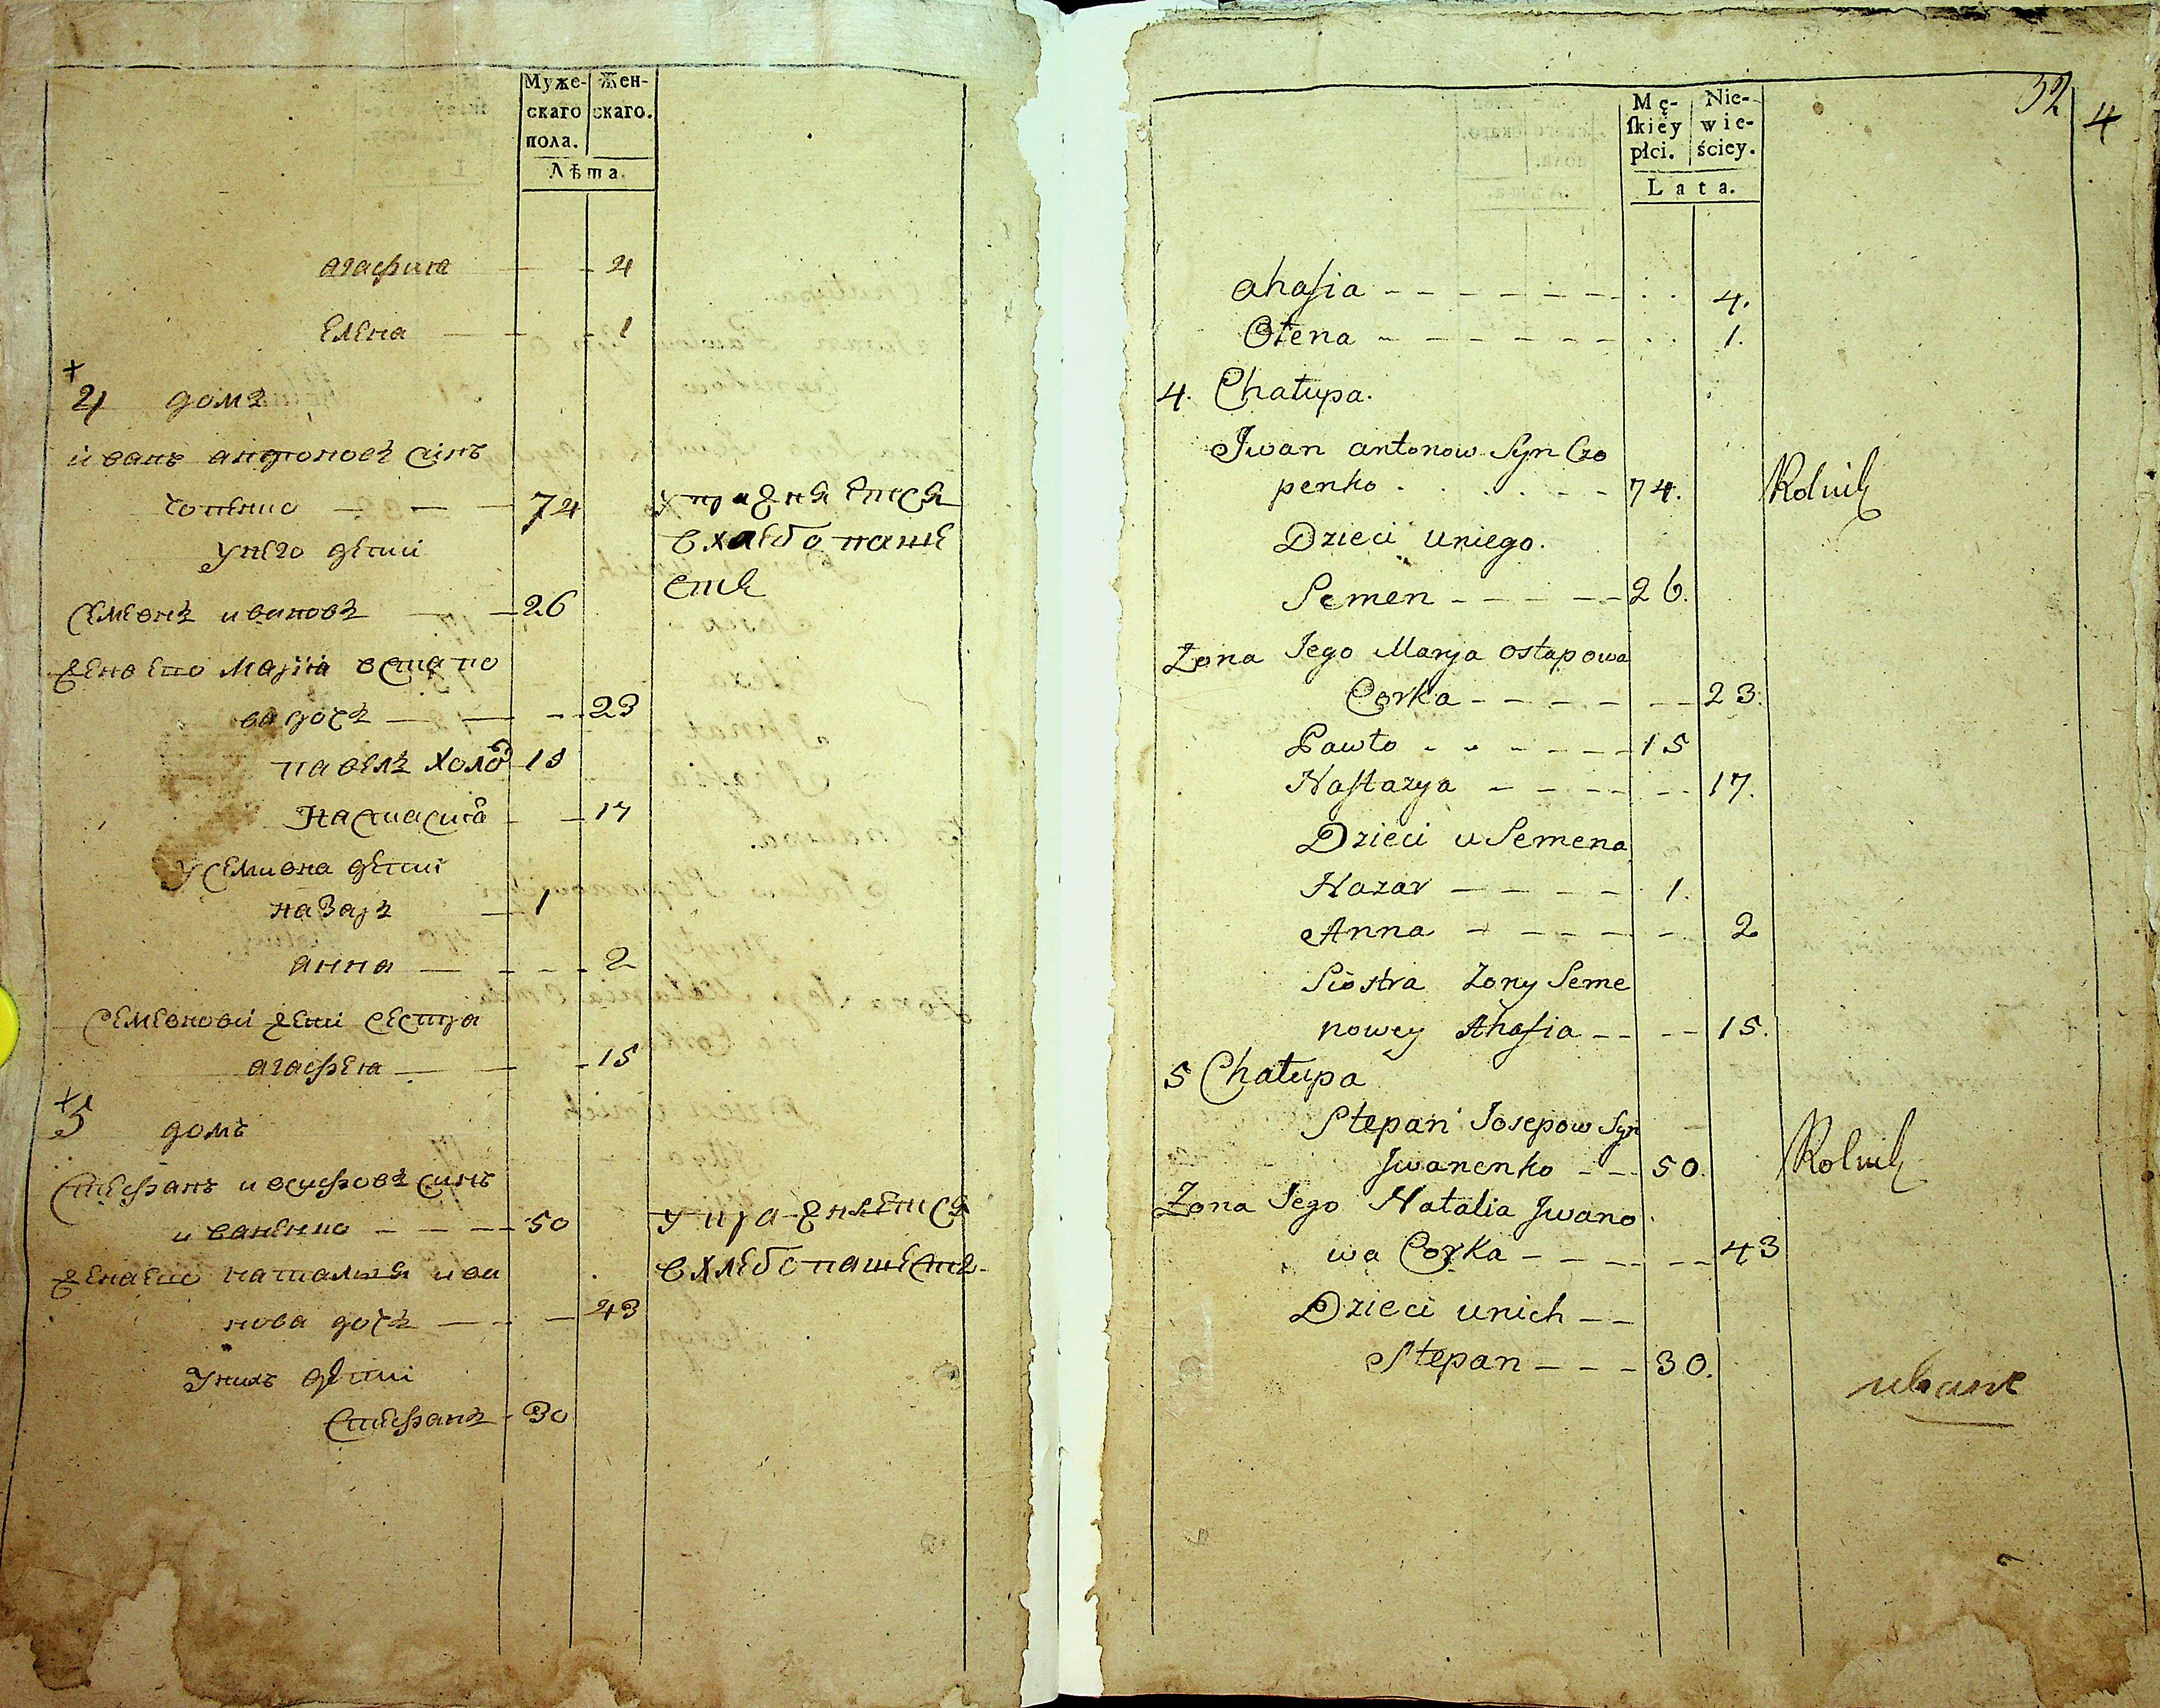 Муже- Жен-
скаго скаго.
пола.
Лѣта.
агафия — - 4
Елена — - 1
+
4 домъ
иванъ антоновъ синъ
чопенко — — — 74 упражняется
в хлебопаше
ствѣ
унего дети
Семенъ ивановъ — — 26
жена его Мария остапо
ва дочъ — — - - 23
павелъ холо 15
Настасия - - 17
у Семиона дети
назаръ — 1
анна — - - - 2
Семеновой жени сестра
агафея — — - 15
+
5 домъ
Стефанъ иосифовъ синъ
иваненко - - - - 50 упражняется
в хлебопашеств.
жена его наталия ива
нова дочъ — - - 43
Унихъ дети
Стефанъ - 30
32
4
Mę- Nie-
ſkiéy wie-
płci. ściey.
Lata.
ahafia - - - - - - - . . 4.
Ołena - - - - - - - . . 1.
4. Chałupa.
Jwan antonow Syn Czo
penko . . . . . - - 74. Rolnik
Dzieci uniego.
Semen - - - - - 26.
Żona Jego Marya ostapowa
Corka - - - - - - - 23.
Pawło - - - - - - 15
Nastazya - - - - - - 17.
Dzieci u Semena
Nazar - - - - - 1.
Anna - - - - - - 2
Siostra Żony Seme
nowey Ahafia - - - - 15.
5 Chałupa
Stepan Josepow Syn
Jwanenko - - - 50. Rolnik
Żona Jego Natalia Jwano
wa Corka - - - - - - 43
Dzieci unich - -
Stepan - - - - 30.